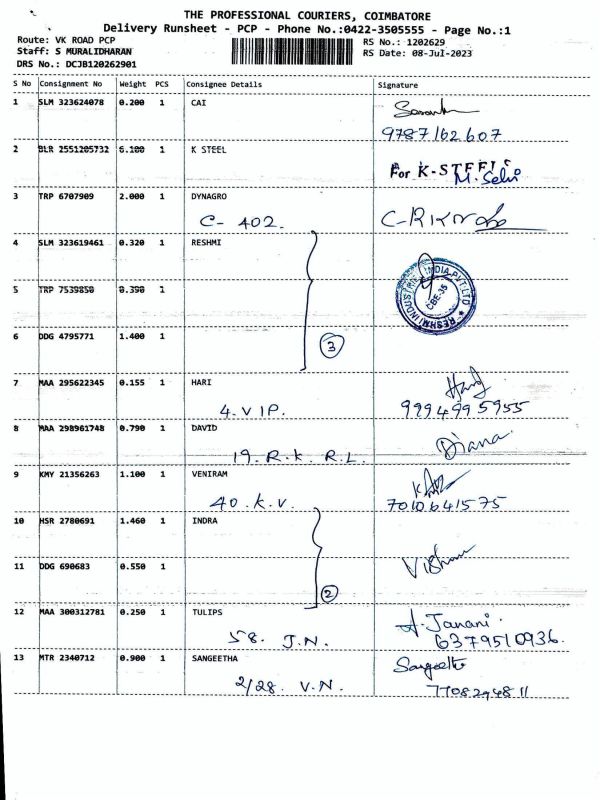 THE PROFESSIONAL COURIERS, COIMBATORE
Delivery Runsheet - PCP - Phone No.:0422-3505555 - Page No.:1
Route: VK ROAD PCP
RS No.: 1202629
Staff: S MURALIDHARAN
RS Date: 08-Jul-2023
DRS No.: DCJB120262901
S No Consignment No Weight PCS Consignee Details Signature
1 SLM 323624078 0.200 1 CAI
9787162607
2 BLR 2551205732 6.100 1 K STEEL
For K-STEEL
M. Selvi
3 TRP 6707909 2.000 1 DYNAGRO
C- 402.
4 SLM 323619461 0.320 1 RESHMI
5 TRP 7539850 0.390 1
RESHMI INDUSTRIES INDIA PVT LTD
CBE-35
6 DDG 4795771 1.400 1
3
7 MAA 295622345 0.155 1 HARI
4. VIP. 9994995955
8 MAA 298961748 0.790 1 DAVID Diana
19. R.K. R.L.
9 KMY 21356263 1.100 1 VENIRAM
40. K.V. 7010641575
10 HSR 2780691 1.460 1 INDRA
11 DDG 690683 0.550 1
2
12 MAA 300312781 0.250 1 TULIPS A. Janani
58. J.N. 6379510936.
13 MTR 2340712 0.900 1 SANGEETHA Sangeetha
2/28. V.N. 7708294811